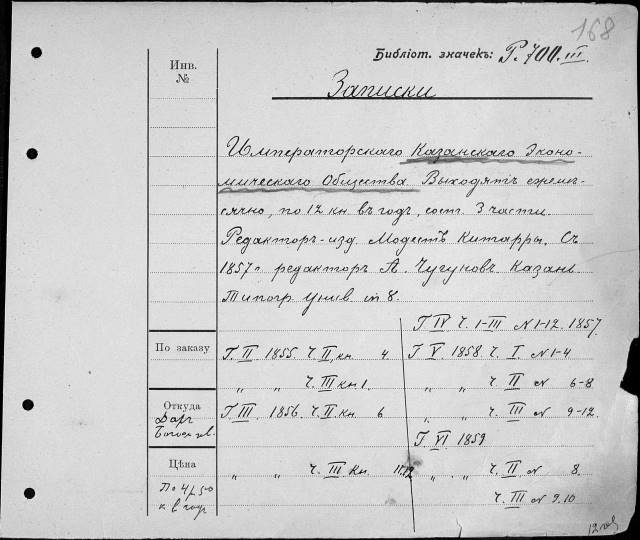 168
Библіот. значекъ: Р. 700. III.
Инв.
№
Записки
Императорскаго Казанскаго Эконо-
мическаго Общества. Выходятъ ежемѣ-
сячно, по 12 кн. въ годъ, сост. 3 части.
Редакторъ-изд. Модестъ Киттары. Съ
1857 г. редакторъ А. Чугуновъ. Казань.
Типогр. унив. in 8.
Г. IV Ч. I-III N 1-12. 1857.
По заказу
Г. II. 1855. Ч. II, кн. 4
Г. V. 1858. Ч. I. N 1-4
„ „ Ч. III кн. 1.
„ „ Ч. II N 6-8
Откуда
Даръ
Г. III. 1856. Ч. II кн. 6
„ „ Ч. III N 9-12.
Г. VI. 1859
Цѣна
По 4 р. 50
к. в год
„ „ Ч. III Кн.
„ „ Ч. II N 8.
Ч. III N 9. 10